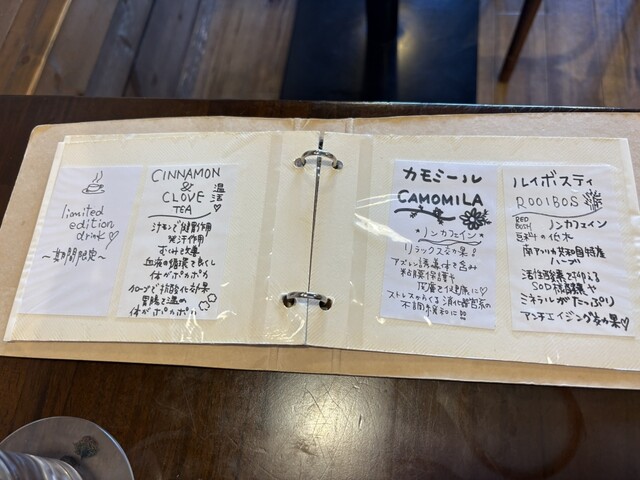 limited
edition
drink♡
〜期間限定〜
CINNAMON
&
CLOVE
TEA
温活♡
シナモンで健胃作用
発汗作用
むくみ改善
血液の循環を良くし
体がポカポカ
クローブで抗酸化効果
胃腸を温め
体がポカポカ
カモミール
CAMOMILA
*ノンカフェイン*
リラックス効果!
アズレン誘導体を含み
粘膜保護と
皮膚を健康に♡
ストレスからくる消化器官系の
不調緩和に!!
ルイボスティ
ROOIBOS
RED
BUSH
ノンカフェイン
豆科の低木
南アフリカ共和国特産
ハーブ
活性酸素を抑える
SOD様酵素や
ミネラルがたっぷり
アンチエイジング効果♡